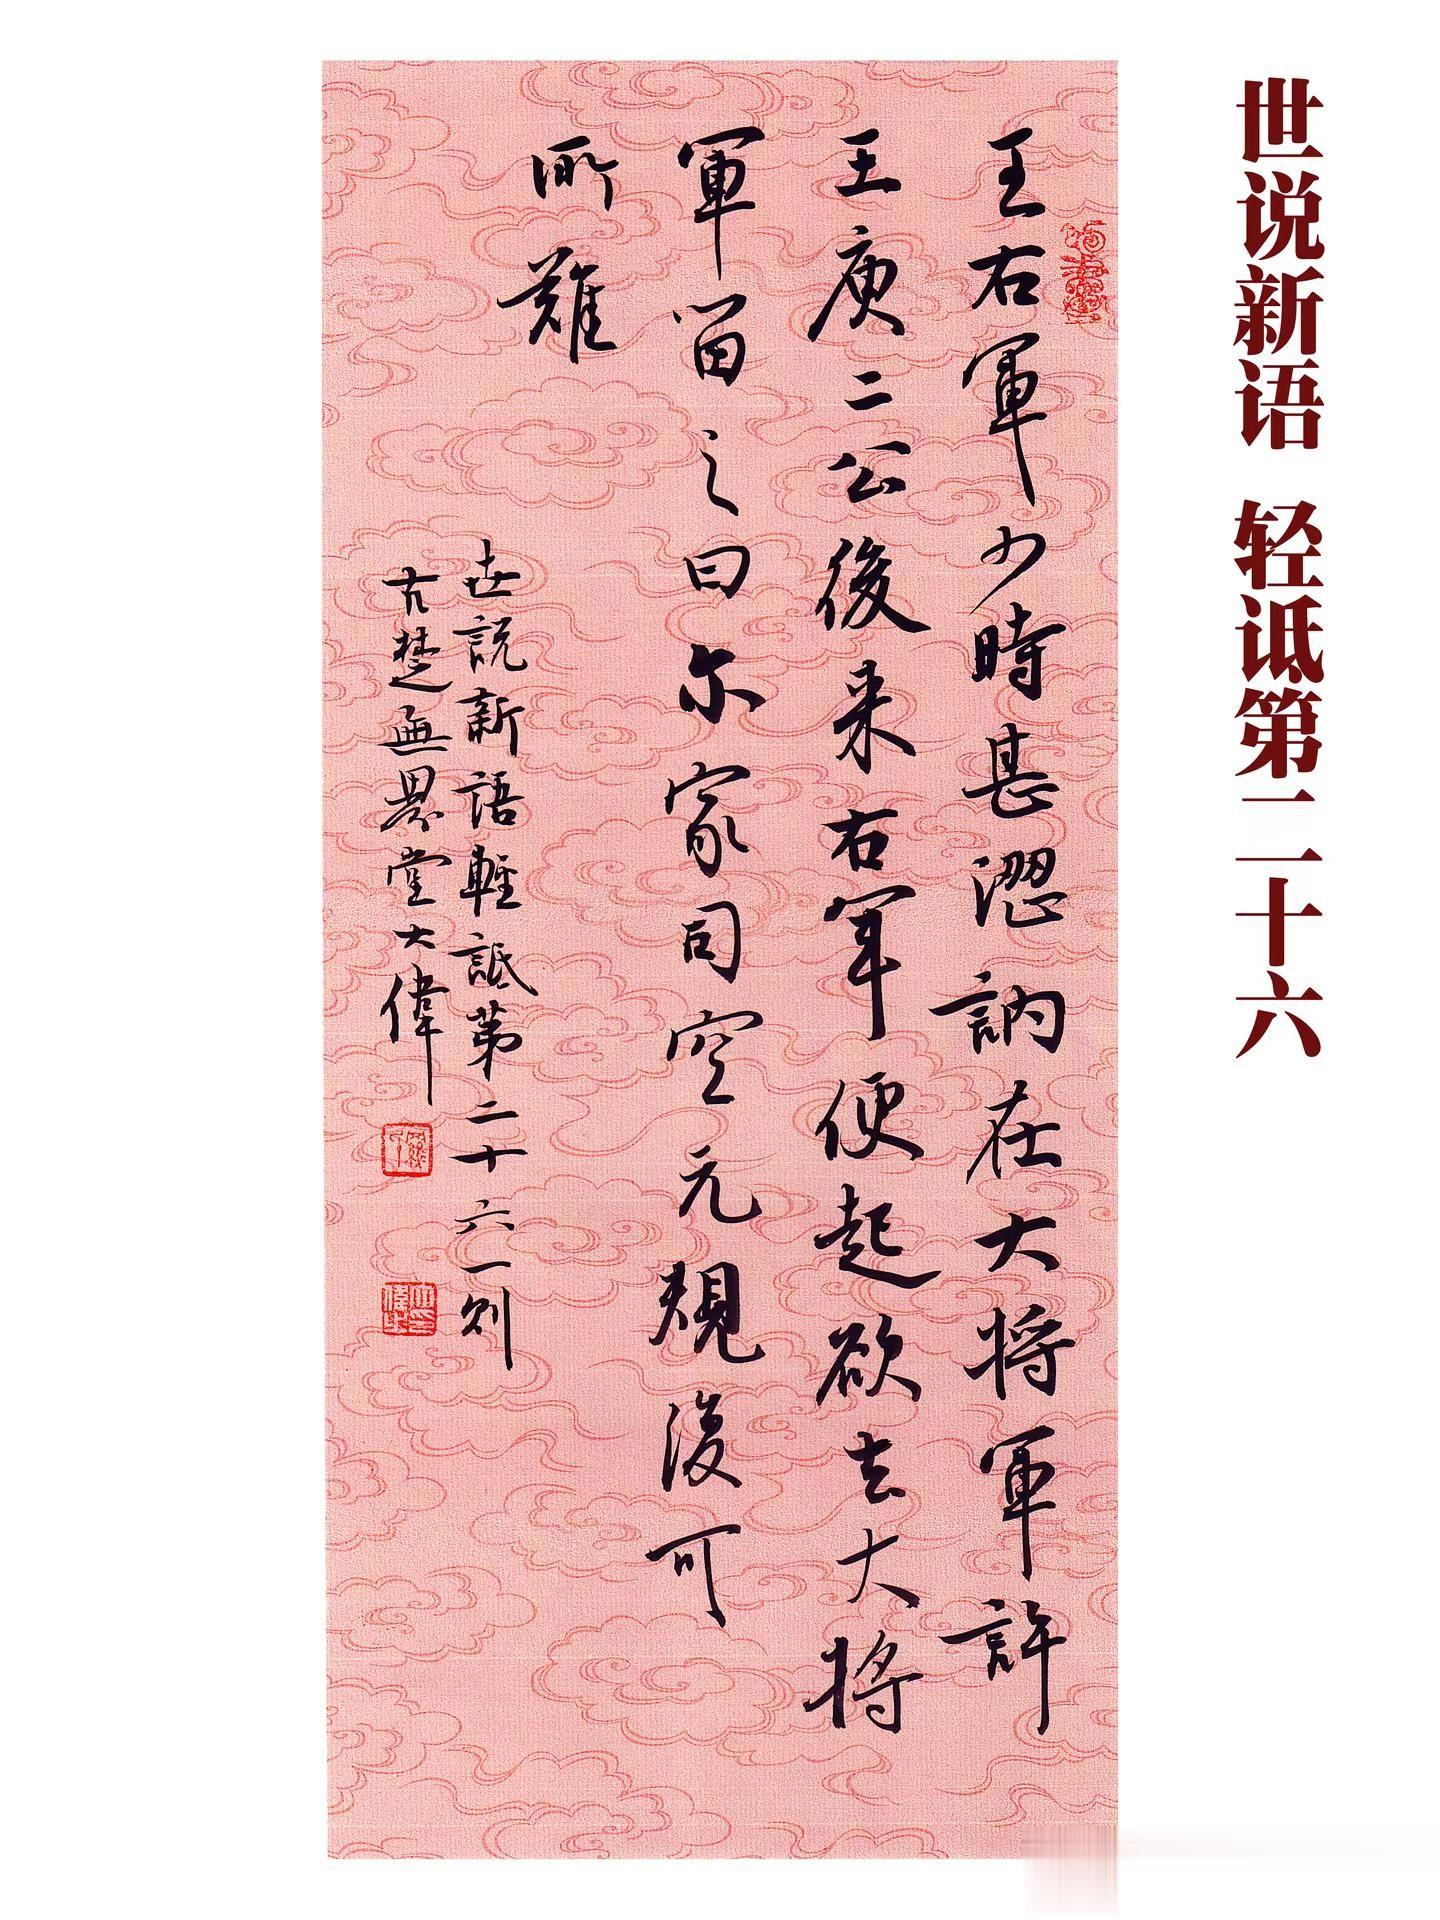 世说新语 轻诋第二十六
王右軍少時甚澀訥在大将軍許
王庾二公後来右軍便起欲去大将
軍留之曰尔家司空元規復可
所難
世説新語輕詆第二十六一則
古楚無畏堂大偉